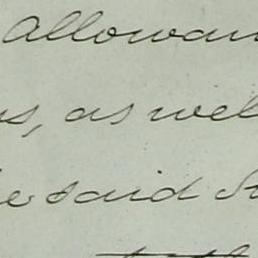 allowan
s, as wel
e said S